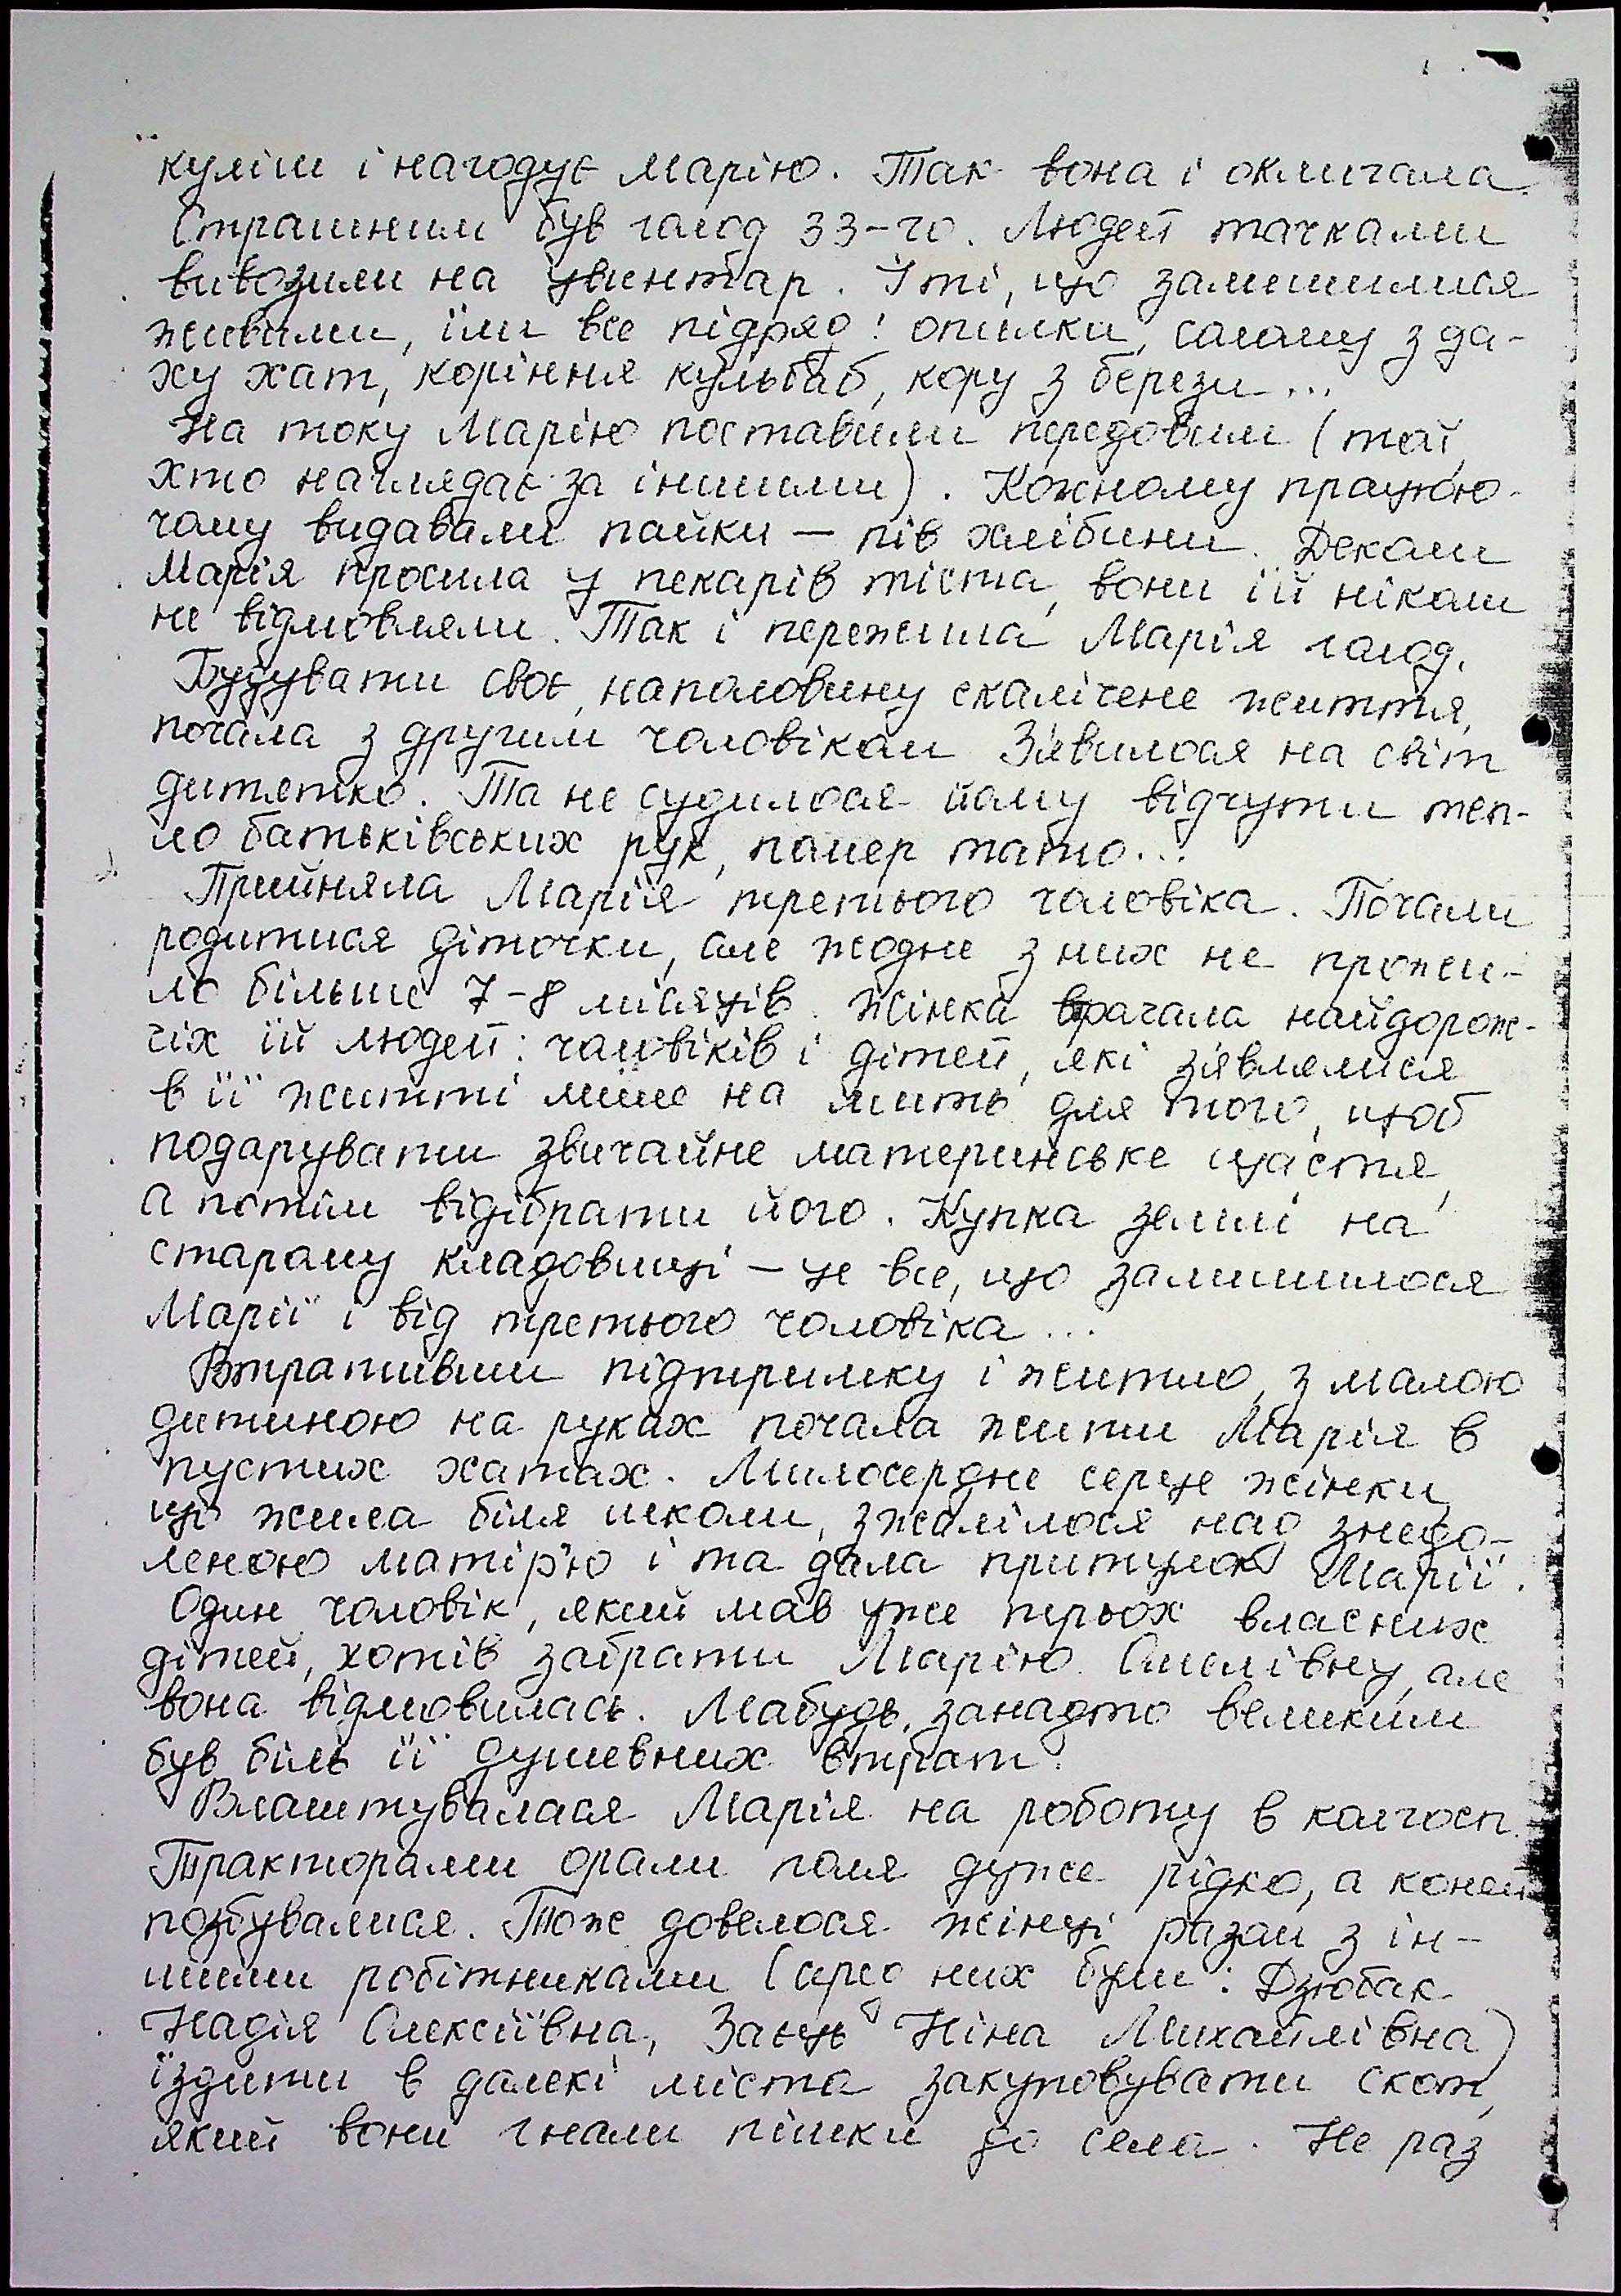 куліш і нагодує Марію. Так вона і оклигала.
Страшним був голод 33-го. Людей тачками
вивозили на цвинтар. У ті, що залишилися
живими, їли все підряд: опилки, солому з да-
ху хат, коріння кульбаб, кору з берези...
На току Марію поставили передовим (той,
хто наглядає за іншими). Кожному працюю-
чому видавали пайки — пів хлібини. Деколи
Марія просила у пекарів тіста, вони їй ніколи
не відмовляли. Так і пережила Марія голод.
Будувати своє, наполовину скалічене життя,
почала з другим чоловіком. Зявилося на світ
дитятко. Та не судилося йому відчути теп-
ло батьківських рук, помер тато...
Прийняла Марія третього чоловіка. Почали
родитися діточки, але жодне з них не прожи-
ло більше 7-8 місяців. Жінка втрачала найдорож-
чих їй людей: чоловіків і дітей, які зявлялися
в її житті лише на мить для того, щоб
подарувати звичайне материнське щастя,
а потім відібрати його. Купка землі на
старому кладовищі — це все, що залишилося
Марії і від третього чоловіка...
Втративши підтримку і житло, з малою
дитиною на руках почала жити Марія в
пустих хатах. Милосердне серце жінки,
що жила біля школи, зжалілося над знедо-
леною матір'ю і та дала притулок Марії.
Один чоловік, який мав уже трьох власних
дітей, хотів забрати Марію Омелівну, але
вона відмовилась. Мабудь, занадто великим
був біль її душевних втрат.
Влаштувалася Марія на роботу в колгосп.
Тракторами орали поля дуже рідко, а коней
позбувалися. Тож довелося жінці разом з ін-
шими робітниками (сред них були: Дзюбак
Надія Олексіївна, Заєць Ніна Михайлівна)
їздити в далекі міста закуповувати скот,
який вони гнали пішки до села. Не раз